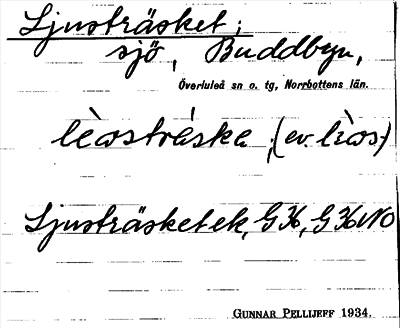 Ljusträsket;
sjö, Buddbyn,
Överluleå sn o. tg, Norrbottens län.
lèosträ́ska, (ev. lìos-)
Ljusträsket ek, G 36, G 36 NO
GUNNAR PELLIJEFF 1934.